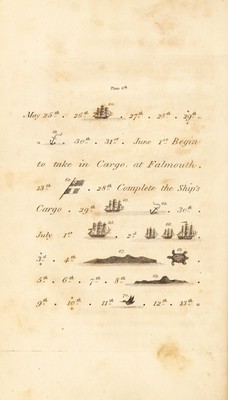 Plate 6th
May 25th . 26th . 27th . 28th . 29th
30th . 31st . June 1st Begin
to take in Cargo. at Falmouth.
23th . 28th Complete the Ship's
Cargo . 29th . 30th .
July 1st . 2d .
3d . 4th .
5th . 6th . 7th . 8th .
9th . 10th . 11th . 12th . 13th